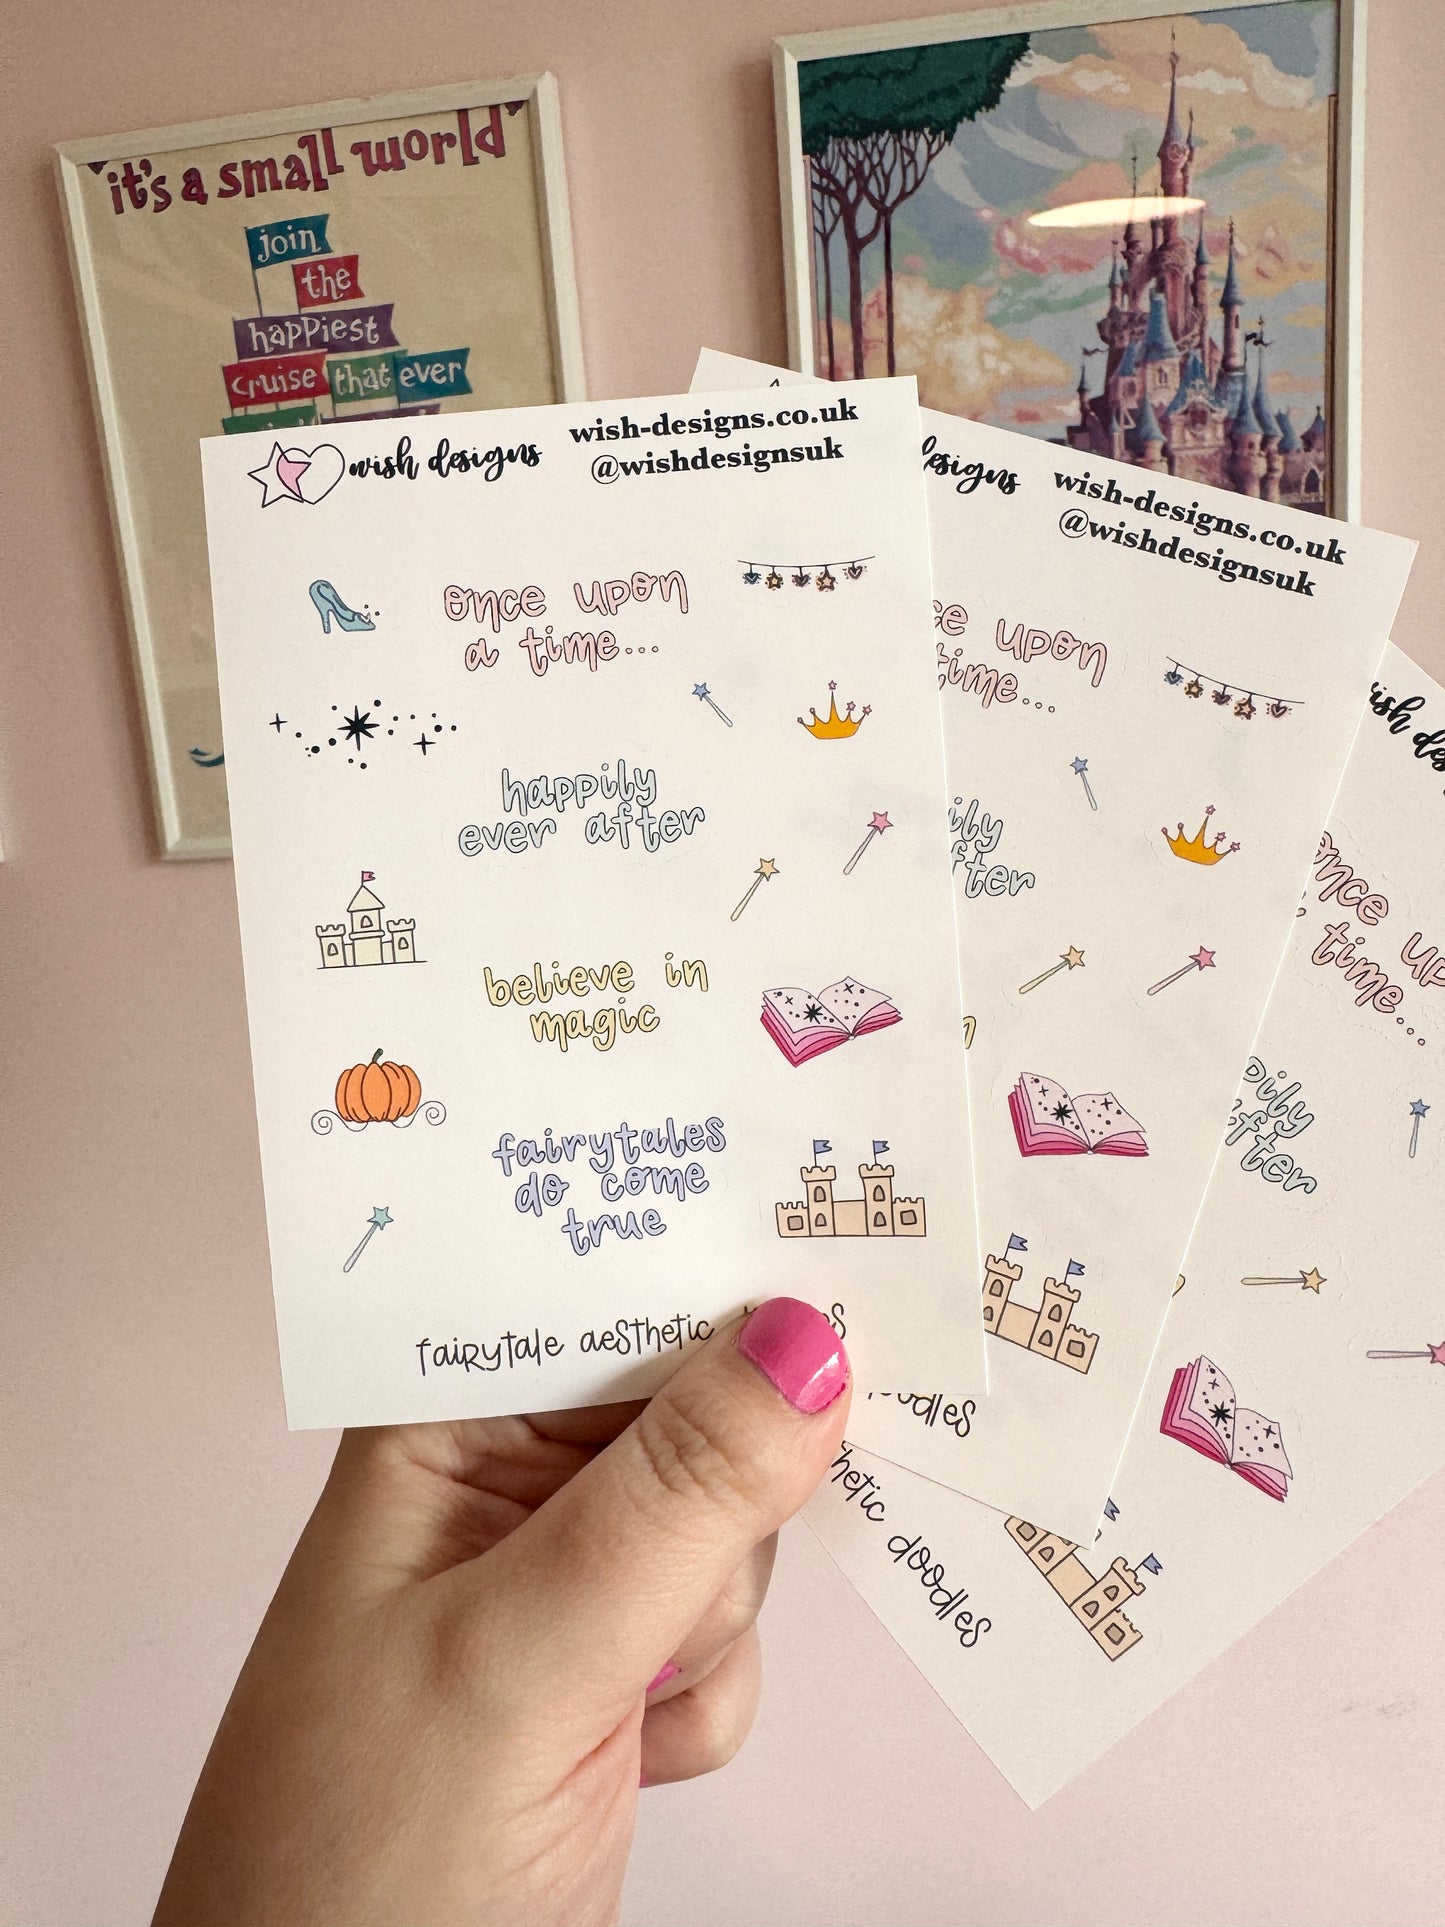 it's a small world
join
the
happiest
cruise that ever
wish designs
wish-designs.co.uk
@wishdesignsuk
once upon
a time...
happily
ever after
believe in
magic
fairytales
do come
true
fairytale aesthetic
designs
wish-designs.co.uk
@wishdesignsuk
upon
time...
doodles
wish
once
time...
doodles